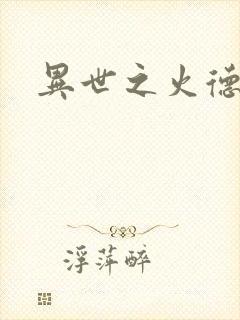 異世之火德
浮萍醉